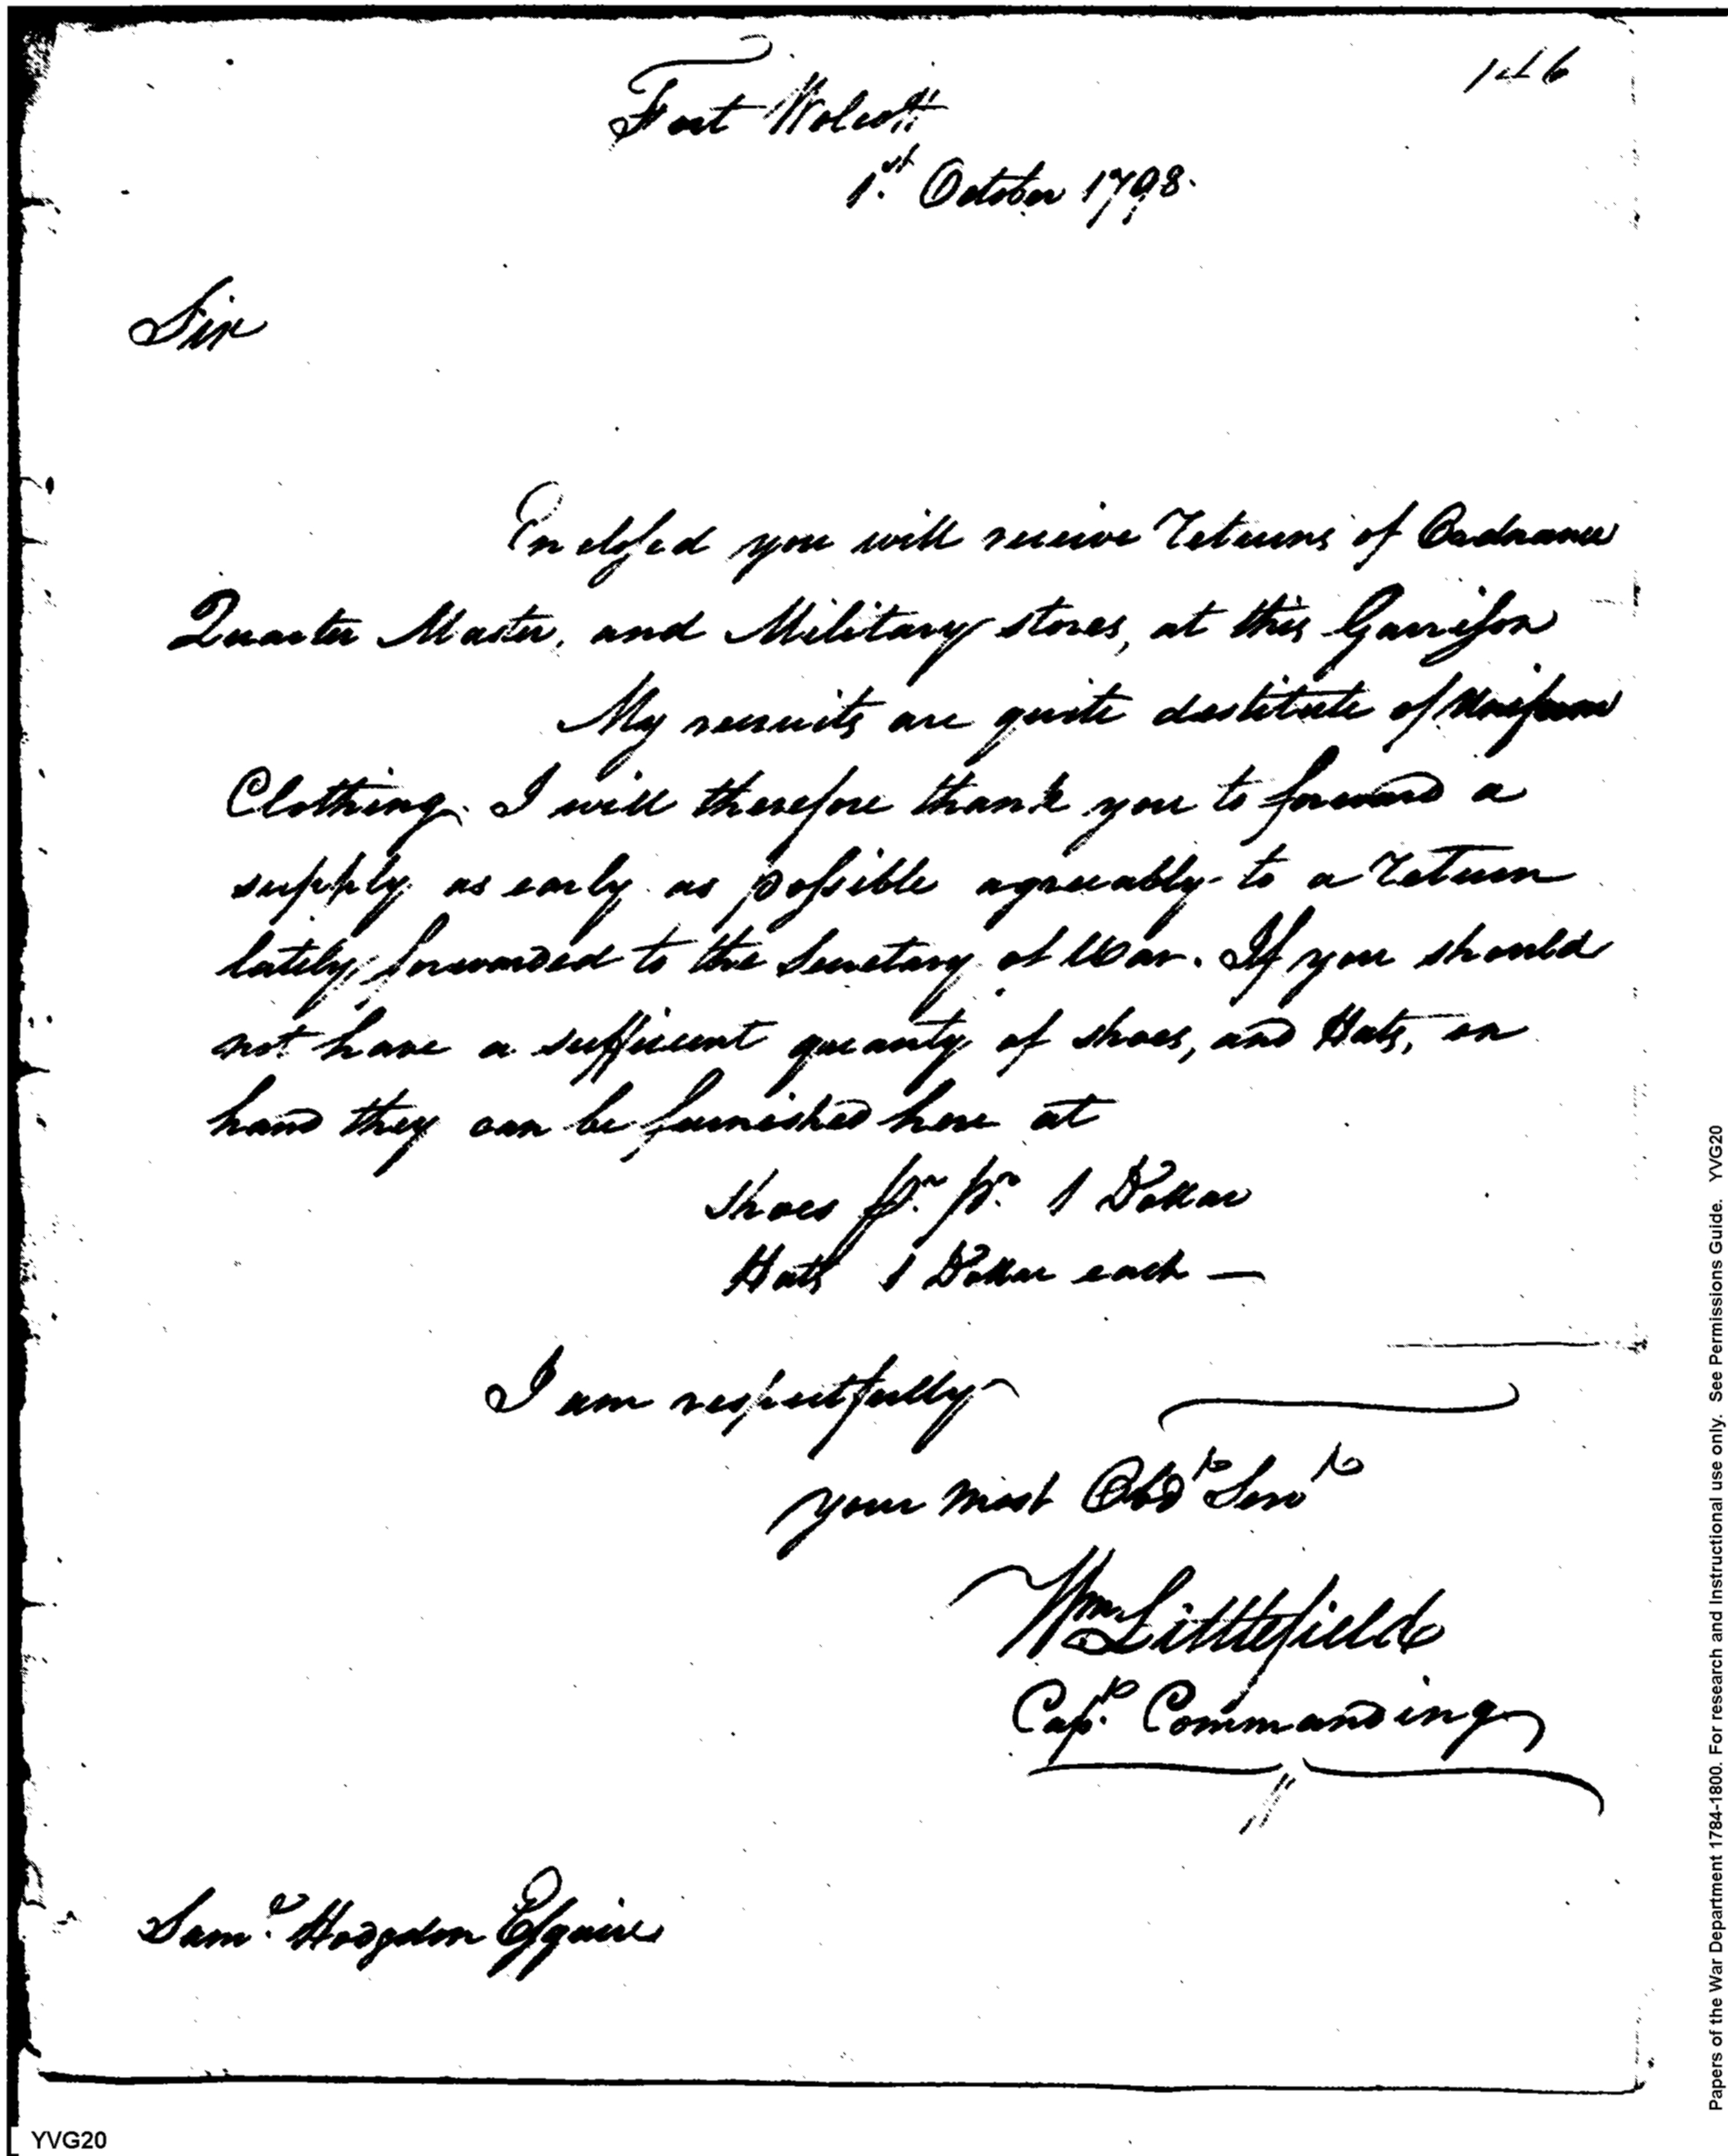 146
Fort Wolcott
1st October 1798.
Sir
Enclosed you will receive returns of Ordnance
Quarter Master, and Military stores, at this Garrison
My recruits are quite destitute of Uniform
Clothing. I will therefore thank you to forward a
supply as early as possible agreeably to a return
lately forwarded to the Secretary of War. If you should
not have a sufficient quanty of shoes, and Hats, on
hand they can be furnished here at
Shoes pr. pr. 1 Dollar
Hats 1 Dollar each —
I am respectfully
your most Obdt Servt
Wm Littlefield
Capt. Commanding
Saml. Hodgdon Esquire
YVG20
Papers of the War Department 1784-1800. For research and Instructional use only. See Permissions Guide. YVG20